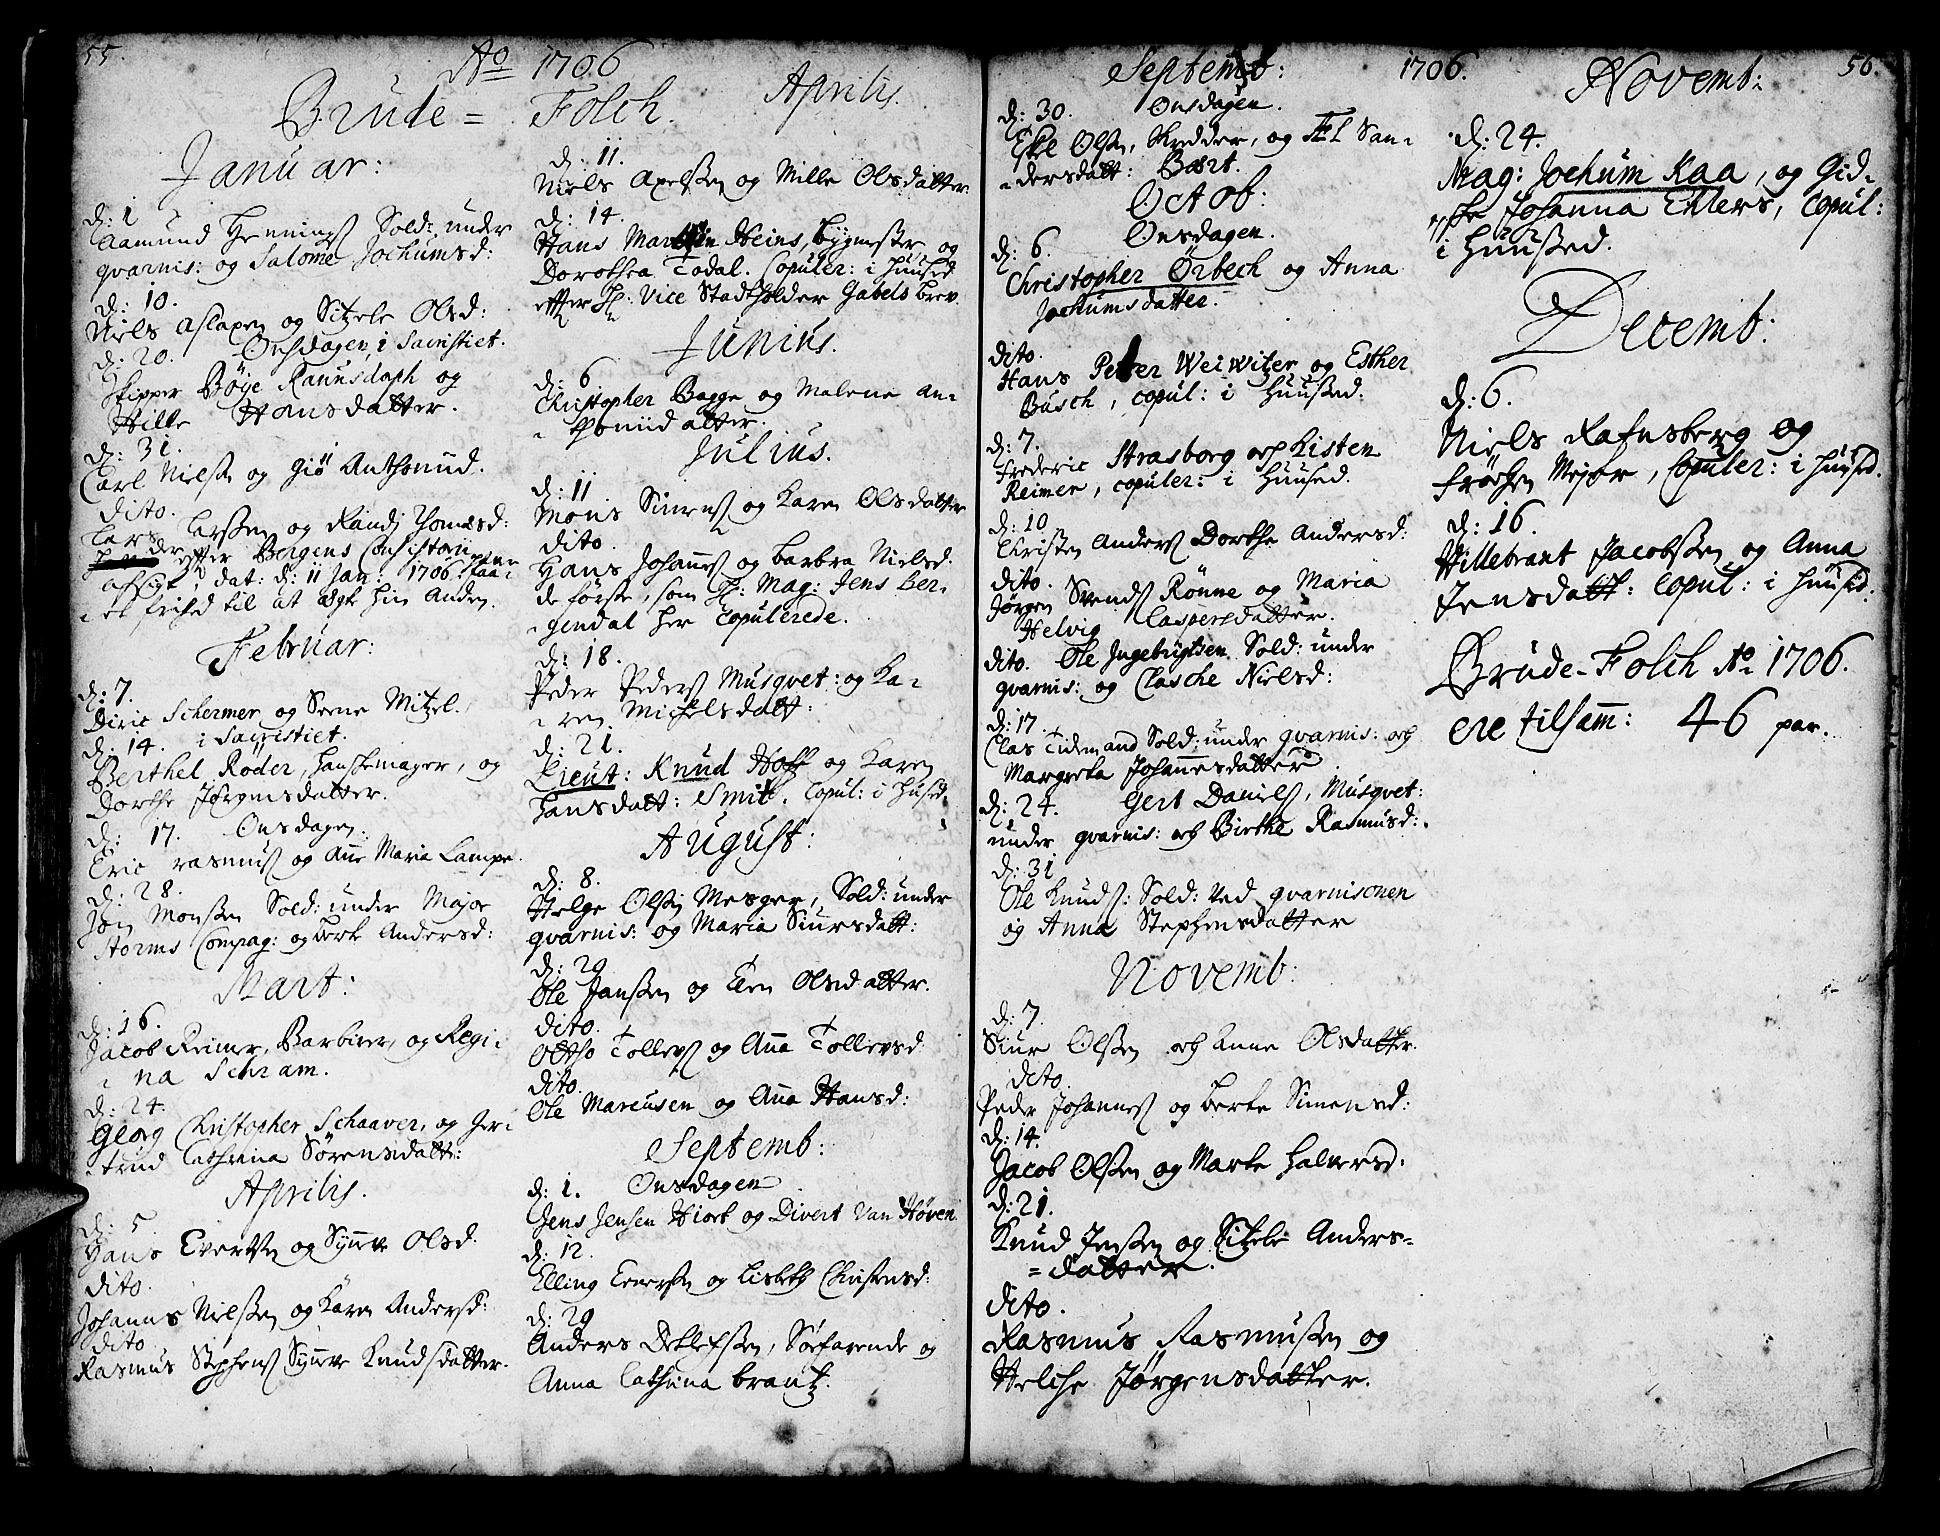 55.
Ao 1706
Brude = Folch.
Januar:
d: 1
Aamund Hennings Sold: under
gvarnis: og Salome Jochumsd:
d: 10.
Niels Aslaxen og Sitzele Olsd:
d: 20. Onsdagen i Sacristiet.
Skipper Böye Raunsdaph og
Hille Hansdatter.
d: 31.
Carl Nielssen og Giö Anthonüd.
dito.
Lars Larssen og Randj Thomasd:
der efter Bergens Consistorii
afsigt dat: d: 11 Jan: 1706
et frihed til at ægte hin Anden.
Februar:
d: 7.
Diric Schermer og Serne Mitzel.
d: 14. i Sacristiet.
Berthel Röder, Handskemager, og
Dorthe Jörgensdatter.
d: 17. Onsdagen.
Eric Rasmus og Ane Maria Lampe.
d: 28.
Jon Monssen Sold: under Major
Storms Compag: og Berte Andersd:
Mart:
d: 16.
Jacob Reimer, Barbirer, og Regi-
-na Schram.
d: 24.
Georg Christopher Schaaver, og Ger-
-trud Cathrina Sörensdatt:
Aprilis.
d: 5
Hans Evertsen og Synneve Olsd.
dito.
Johannes Nielssen og Karen Andersd:
dito
Rasmus Stephens Synneve Knudsdatter.
Aprilis.
d: 11.
Niels Axelssen og Mille Olsdatter
d: 14.
Hans Martin Heins, bygmester og
Dorothea Todal. Copuler: i Huused
efter H: Vice Stadtholder Gabels brev.
Junius.
d: 6
Christopher Bagge og Malene An-
-thoniidatter.
Julius.
d: 11
Mons Simens og Karen Olsdatter
dito.
Hans Johans og Barbra Nielsd.
de förste, som H: Mag: Jens Ber-
-gendal her Copulerede.
d: 18.
Peder Peders Musqvet: og Ka-
-ren Michelsdatt:
d: 21.
Lieut: Knud Hoff og Karen
Hansdatt: Smit. Copul: i Hused.
August:
d: 8.
Helge Olssen Mesger, Sold: under
gvarnis: og Maria Siursdatt:
d: 29
Ole Janssen og Elen Olsdatter.
dito.
Ottho Tollevs og Ana Tollevsd
dito.
Ole Marcusen og Ana Hansd:
Septemb:
d: 1. Onsdagen
Jens Jensen Hiort og Divert Van Höven
d: 12.
Elling Evertsen og Lisbeth Christensd:
d: 29
Anders Detlefssen, Söefarende og
Anna Cathrina Brantz.
Septemb: 1706.
d: 30. Onsdagen.
Eskel Olsen, Skredder, og Æl San-
-dersdatt: Bart.
Octob:
d: 6. Onsdagen.
Christopher Örbech og Anna
Jochumsdatter.
dito.
Hans Peter Weiwitzer og Esther
Busch, copul: i Huused.
d: 7.
Frederic Strasborg och Kisten
Reimer, copuler: i Huused.
d: 10
Christen Anders Dorthe Andersd:
dito.
Jörgen Svends Rönne og Maria
Helvig Caspersdatter.
dito. Ole Ingebrigtsen Sold: under
gvarnis: og Clasche Nielsd:
d: 17.
Clas Tidemand Sold: under gvarnis: och
Margreta Johannesdatter
d: 24. Gert Daniels, Musqvet:
under gvarnis: och Birthe Rasmusd:
d: 31
Ole Knuds: Sold: ved gvarnisonen
og Anna Stephensdatter
Novemb:
d: 7.
Siur Olssen och Anne Olsdatter.
dito.
Peder Johannes og Berte Simensd:
d: 14.
Jacob Olssen og Marte Halversd:
d: 21.
Knud Jenssen og Sitzele Anders-
=datter.
dito.
Rasmus Rasmussen og
Helche Jörgensdatter.
Novemb: 56.
d: 24.
Mag: Jochum Kaa, og Gid-
-ske Johanna Ehlers, Copul:
i Huused.
Decemb:
d: 6.
Niels Rafnsberg og
Fröchen Mejer, Copuler: i Huused.
d: 16.
Hillebrant Jacobssen og Anna
Jensdatt: Copul: i Huused.
Brude-Folch Ao 1706.
ere tilsam: 46 par.